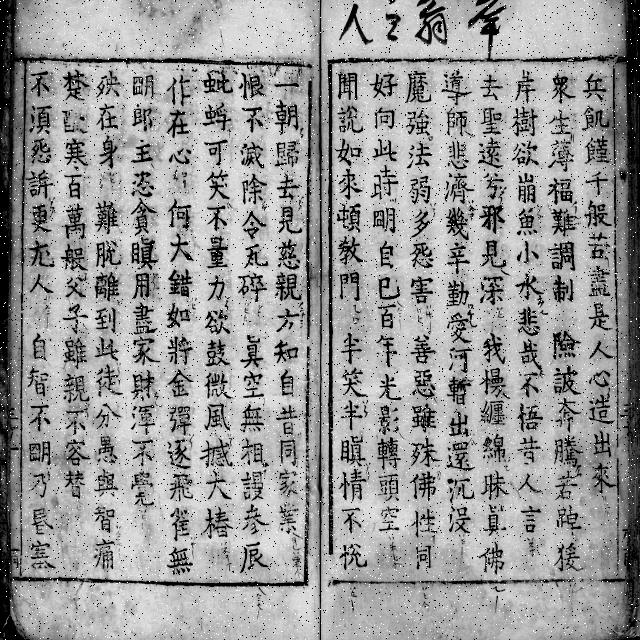 峯翁之人
兵飢饉千般苦盡是人心造出來
眾生薄福難調制 險詖奔騰若跛猿
岸樹欲崩魚小水悲哉不悟昔人言
去聖遠兮邪見深 我慢纏綿昧真佛
導師悲濟幾辛勤愛河暫出還沉沒
魔強法弱多怨害 善惡雖殊佛性同
好向此時明自己百年光影轉頭空
聞說如來頓教門 半笑半瞋情不悅
一朝歸去見慈親方知自昔同家業
恨不滅除令瓦碎 真空無相謾參辰
蚍蜉可笑不量力欲鼓微風撼大椿
作在心 何大錯如將金彈逐飛雀無
明郎主恣貪瞋用盡家財渾不覺
殃在身 難脫離到此徒分愚與智痛
楚酸寒百萬般父子雖親不容替
不須怨訴更尤人 自智不明乃昏塞